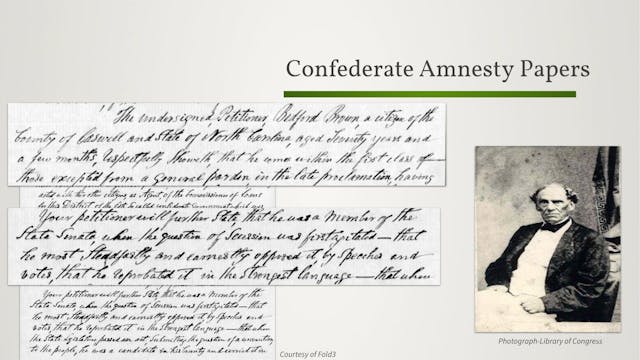 Confederate Amnesty Papers
The undersigned Petitioner, Bedford Brown a citizen of the
County of Caswell and State of North Carolina, aged Seventy years and
a few months, respectfully showeth, that he come within the first class of
those excepted from a general pardon in the late proclamation, having
acted with other citizens as Agent of the Commissioner of
in this District of the
Your petitioner will further State, that he was a Member of the
State Senate, when the question of Secession was first agitated — that
he most Steadfastly and earnestly opposed it by Speeches and
votes, that he reprobated it in the strongest language — that when
Your petitioner will further State, that he was a Member of the
State Senate, when the question of Secession was first agitated — that
he most Steadfastly and earnestly opposed it by Speeches and
votes, that he reprobated it in the strongest language — that when
the State Legislature passed an act submitting the question of a convention
to the people, he was a candidate in his County and carried it on
Photograph-Library of Congress
Courtesy of Fold3